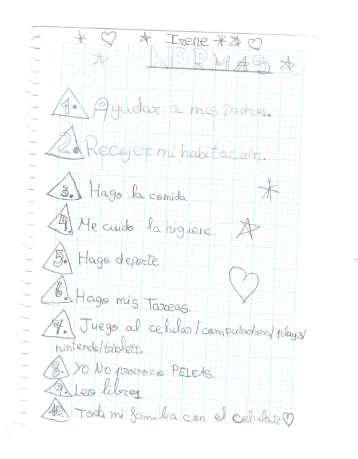 Irene
NORMAS
1. Ayudar a mis padres.
2. Recojer mi habitación.
3. Hago la comida
4. Me cuido la higiene.
5. Hago deporte
6. Hago mis Tareas.
7. Juego al celular/computadora/play3/
nintendo/tablett.
8. YO NO provoco PELEAS
9. Leo libros
10. Toda mi familia con el celular